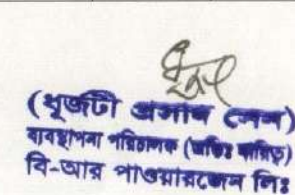 (ধূর্জটী প্রসাদ সেন)
ব্যবস্থাপনা পরিচালক (অতিঃ দায়িত্ব)
বি-আর পাওয়ারজেন লিঃ